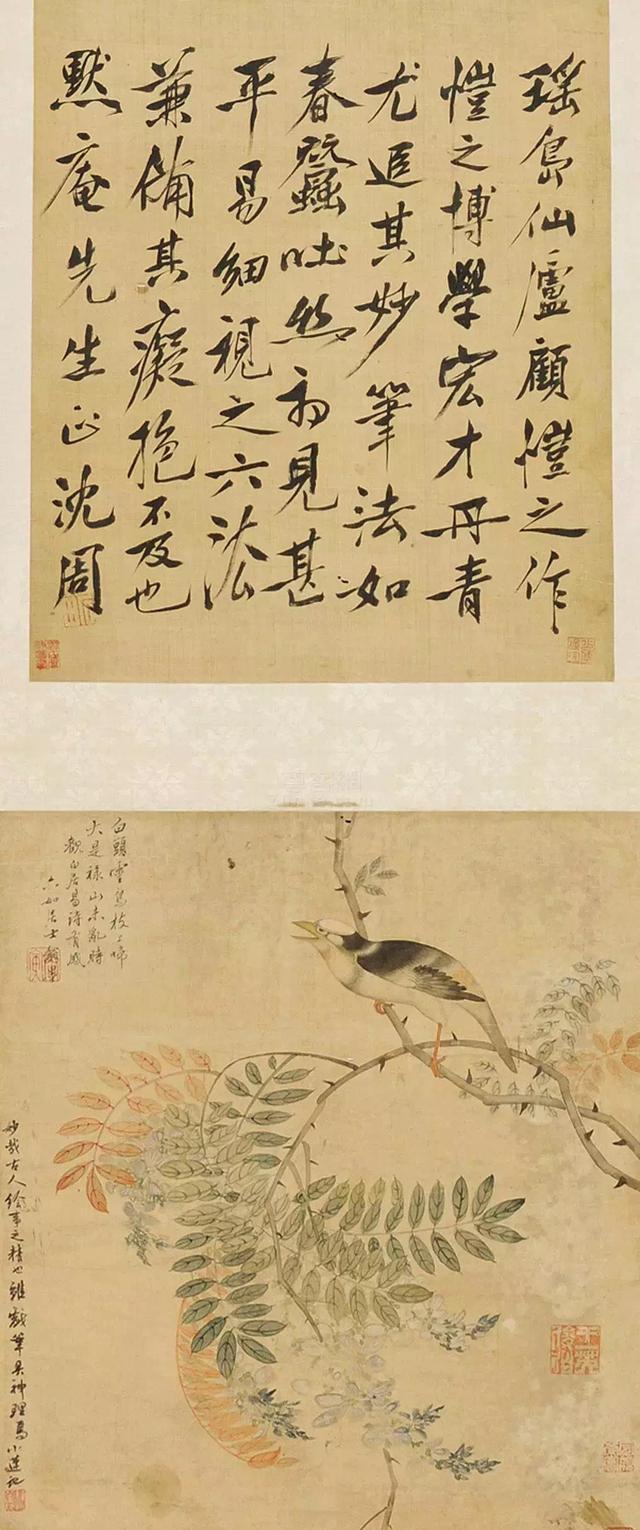 瑤島仙廬顧愷之作
愷之博學宏才丹青
尤追其妙筆法如
春蠶吐絲初見甚
平易細視之六法
兼備其癡不及也
默庵先生正沈周
白頭鳥枝上啼
大是祿山未亂時
觀白居易詩有感
六如居士
妙哉古人繪事之精也雖戲筆具神理焉小蓮記